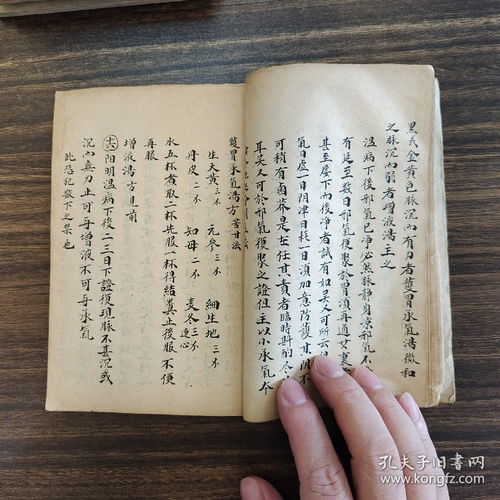 黑或金黃色脉沉而有力者護胃承氣湯微和
之脉沉而弱者增液湯主之
溫病下後邪氣已净必然脉静身凉邪氣不
有延至數日邪氣復聚於胃須再通其裏
甚至屡下而後净者誠有如吴又可所云
氣日虛一日阴津日耗一日須加意防護其阴不
可稍有鹵莽是在任其責者臨時斟酌尽
耳吴又可於邪氣復聚之證但主以小承氣本
護胃承氣湯方苦甘法
生大黃三不 元參三不 細生地三不
丹皮二不 知母二不 麦冬三不連心
水五杯煮取二杯先服一杯得結糞止後服不便
再服
增液湯方見前
十六陽明溫病下後二三日下證復現脉不甚沉或
沉而無力止可與增液不可與承氣
此恐犯數下之禁也
孔夫子旧書网
www.kongfz.com